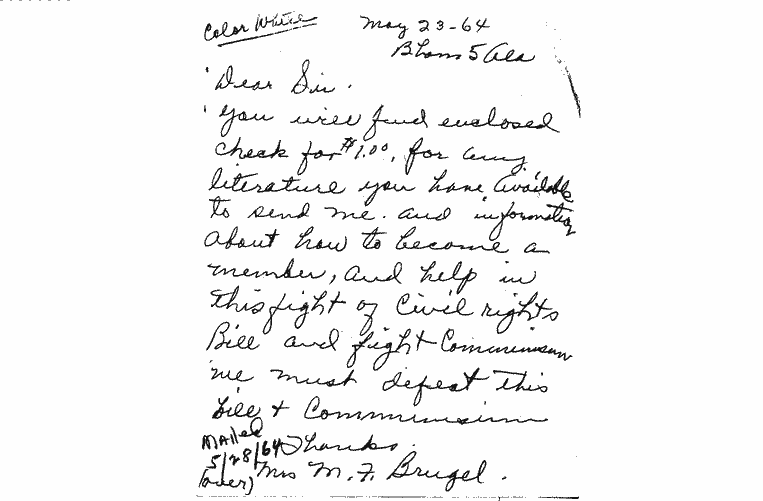 Color White
May 23-64
Bham 5 Ala
Dear Sir.
You will find enclosed
check for $1.00, for any
literature you have available
to send me. and information
about how to become a
member, and help in
this fight of Civil rights
Bill and fight Communism
we must defeat this
bill & Communism
Thanks.
Mrs M. F. Brugel.
Mailed
5/28/64
(over)